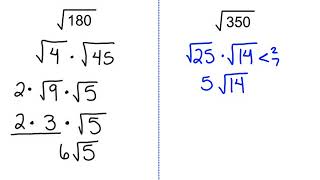 √180
√4 · √45
2 · √9 · √5
2 · 3 · √5
6√5
√350
√25 · √14 < 2 7
5 √14